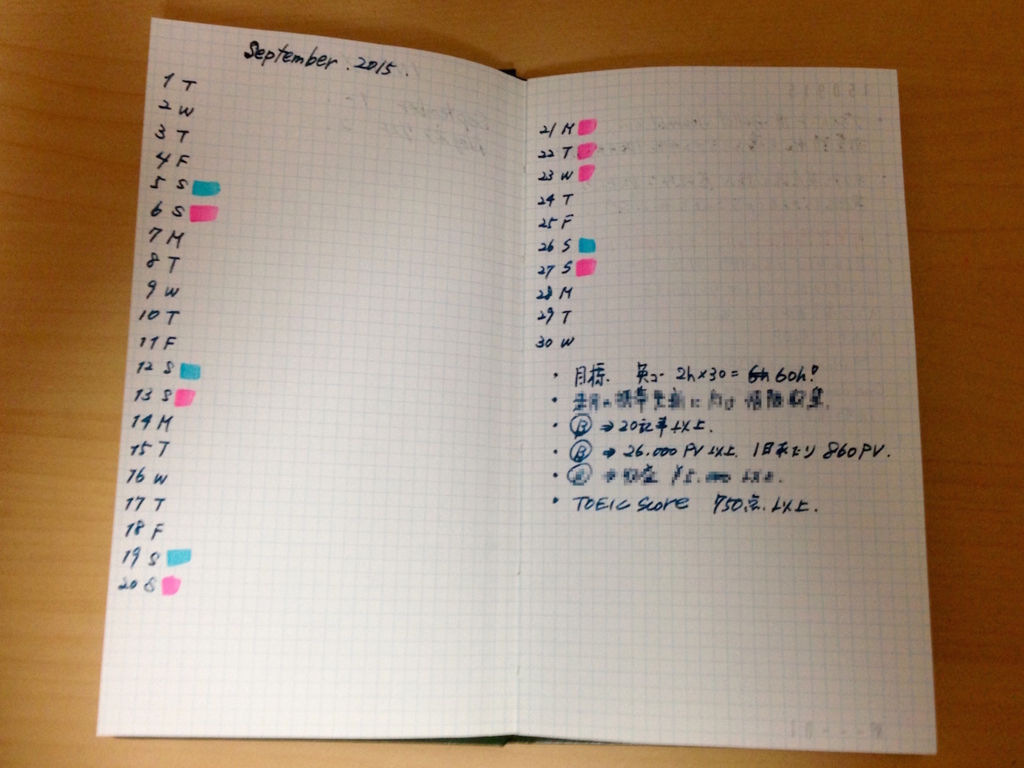 September. 2015.
1 T
2 W
3 T
4 F
5 S
6 S
7 M
8 T
9 W
10 T
11 F
12 S
13 S
14 M
15 T
16 W
17 T
18 F
19 S
20 S
21 M
22 T
23 W
24 T
25 F
26 S
27 S
28 M
29 T
30 W
・目標. 2h×30= 60h!
・Ⓑ ⇒ 20記事以上.
・Ⓑ ⇒ 26.000 PV 以上. 1日あたり 860PV.
・TOEIC Score 750点.以上.